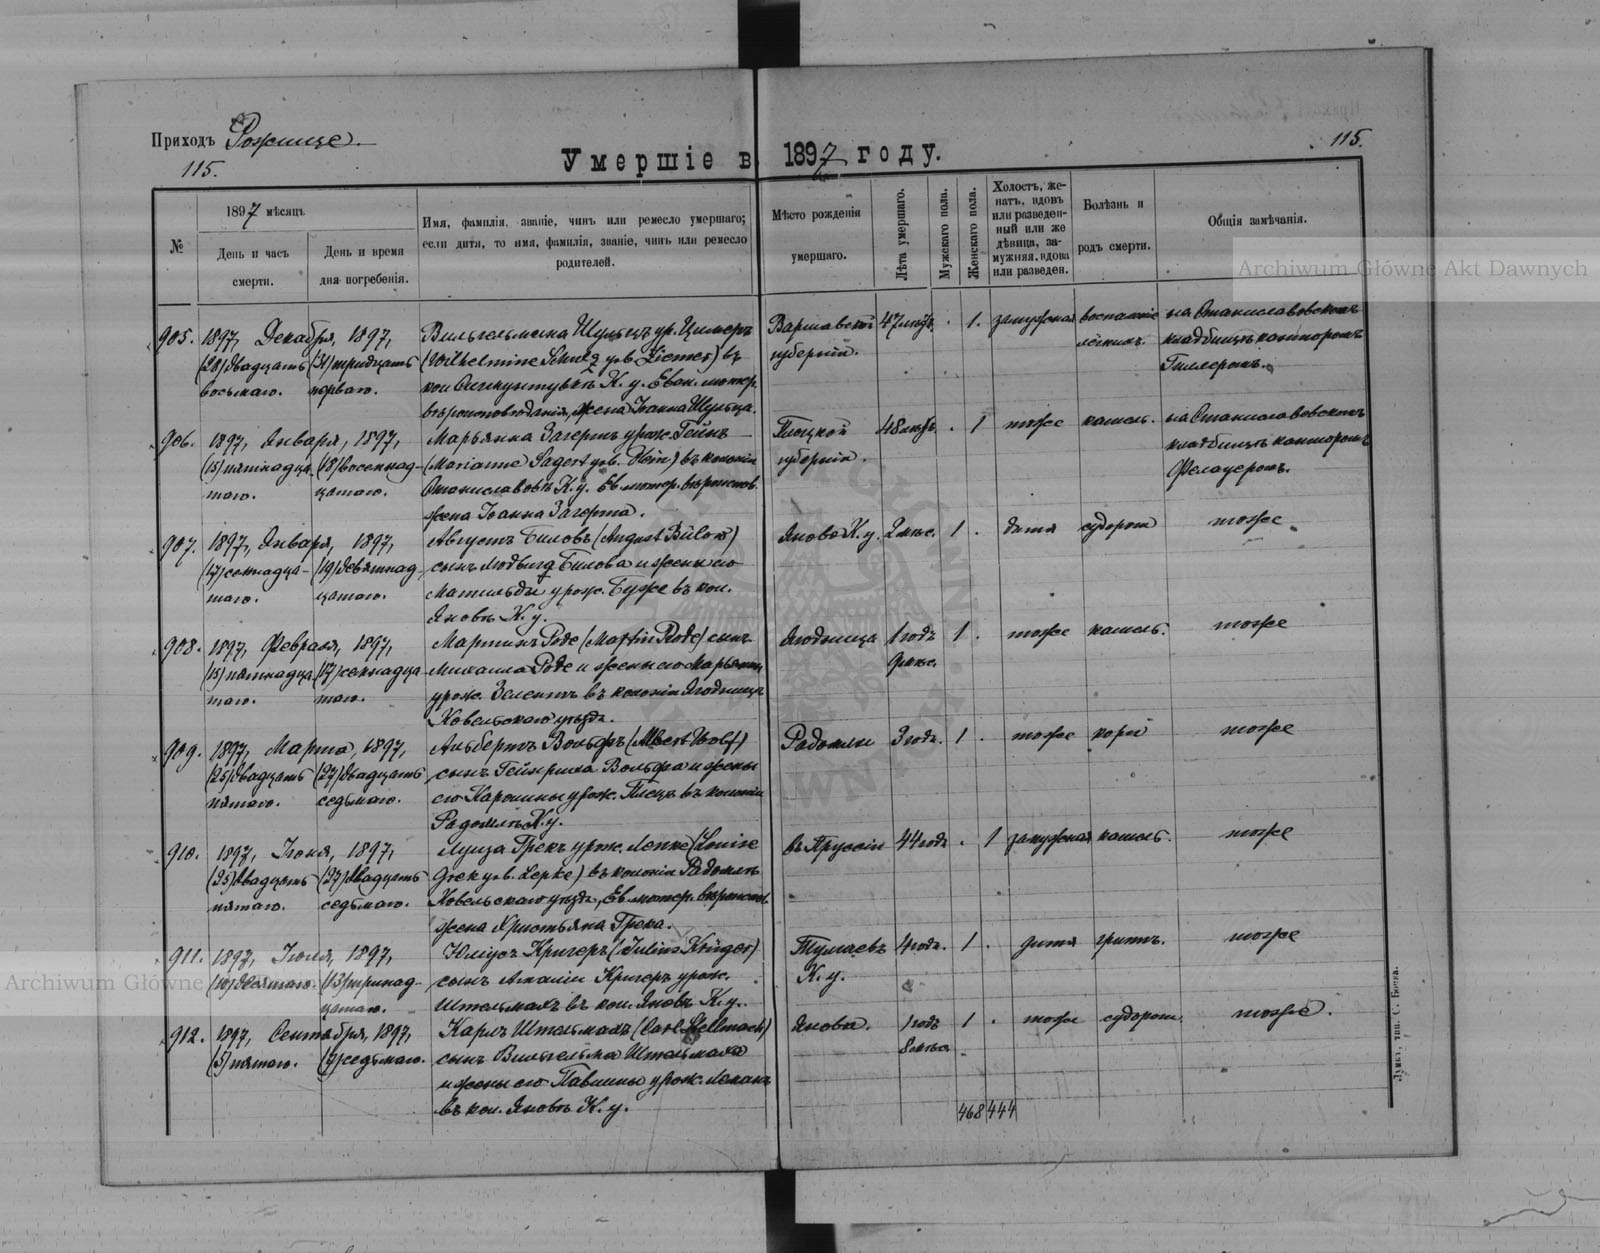 Приходъ Рожище.
115.
Умершіе в 1897 году.
115.
№
1897 мѣсяцъ
День и часъ смерти.
День и время дня погребенія.
Имя, фамилія, званіе, чинъ или ремесло умершаго;
если дитя, то имя, фамилія, званіе, чинъ или ремесло
родителей.
Мѣсто рожденія
умершаго.
Лѣта умершаго.
Мужскаго пола.
Женскаго пола.
Холостъ, же-
натъ, вдовъ
или разведен-
ный или же
дѣвица, за-
мужняя, вдова
или разведен.
Болѣзнь и
родъ смерти.
Общія замѣчанія.
Archiwum Główne Akt Dawnych
905. 1897, Декабря, 1897, Вильгельмина Шульцъ ур. Цимеръ Варшавской 47 лѣтъ. . 1. замужняя воспаленіе на Станиславовскомъ
(28) двадцать (31) тридцать (Wilhelmine Schulz geb. Ziemer) въ губерніи. легкихъ. кладбищѣ канторомъ
восьмаго. перваго. К. у. Еван. лютер.
вѣроисповѣданія, жена Іоанна Шульца.
906. 1897, Января, 1897, Марьянна Загертъ урож. Гейнъ Плоцкой 48 лѣтъ. . 1 тоже кашель. на Станиславовскомъ
(15) пятнадца- (18) восемнад- (Marianne Sagert geb. Hein) въ колоніи губерніи. кладбищѣ канторомъ
таго. цатаго. Станиславовкѣ К. у. Ев. лютер. вѣроиспов.
жена Іоанна Загерта.
907. 1897, Января, 1897, Августъ Биловъ (August Bülow) Янова К. у. 2 мѣс. 1 . дитя судорош тоже
(17) семнадца- (19) девятнад- сынъ Билова и жены его
таго. цатаго. Матильды урож. Буже въ кол.
Яновѣ К. у.
908. 1897, Февраля, 1897, Мартинъ Роде (Martin Rode) сынъ Ягодница 1 годъ 1 . тоже кашель. тоже
(15) пятнадца- (17) семнадца- Михаила Роде и жены его Марьянны 9 мѣс.
таго. таго. урож. въ колоніи Ягодницѣ
Ковельскаго уѣзда.
909. 1897, Марта, 1897, Альбертъ Вольфъ (Albert Wolf) Радомли 3 года. 1 . тоже кори тоже
(25) двадцать (27) двадцать сынъ Гейнриха Вольфа и жены
пятаго. седьмаго. его Каролины урож. въ колоніи
Радомлѣ К. у.
910. 1897, Іюня, 1897, Луиза Грекъ урож. Лепке (Louise въ Пруссіи 44 года. . 1 замужняя кашель. тоже
(25) двадцать (27) двадцать Grek geb. Lepke) въ колоніи Радомлѣ
пятаго. седьмаго. Ковельскаго уѣзда, Ев. лютер. вѣроиспов.
жена Христьяна Грека.
911. 1897, Іюля, 1897, Юліусъ Кригеръ (Julius Krüger) 4 года. 1 . дитя тоже
(13) тринад- сынъ Кригеръ урож. К. у.
цатаго. Штельмахъ въ кол. Яновѣ К. у.
Archiwum Główne
912. 1897, Сентября, 1897, Карлъ Штельмахъ (Carl Stellmach) Янова. 1 годъ 1 . тоже судорош. тоже.
(5) пятаго. (7) седьмаго. сынъ Вильгельма Штельмаха 8 мѣс.
и жены его Павлины урож.
въ кол. Яновѣ К. у.
468 444
Луцкъ, тип. С. Бонка.